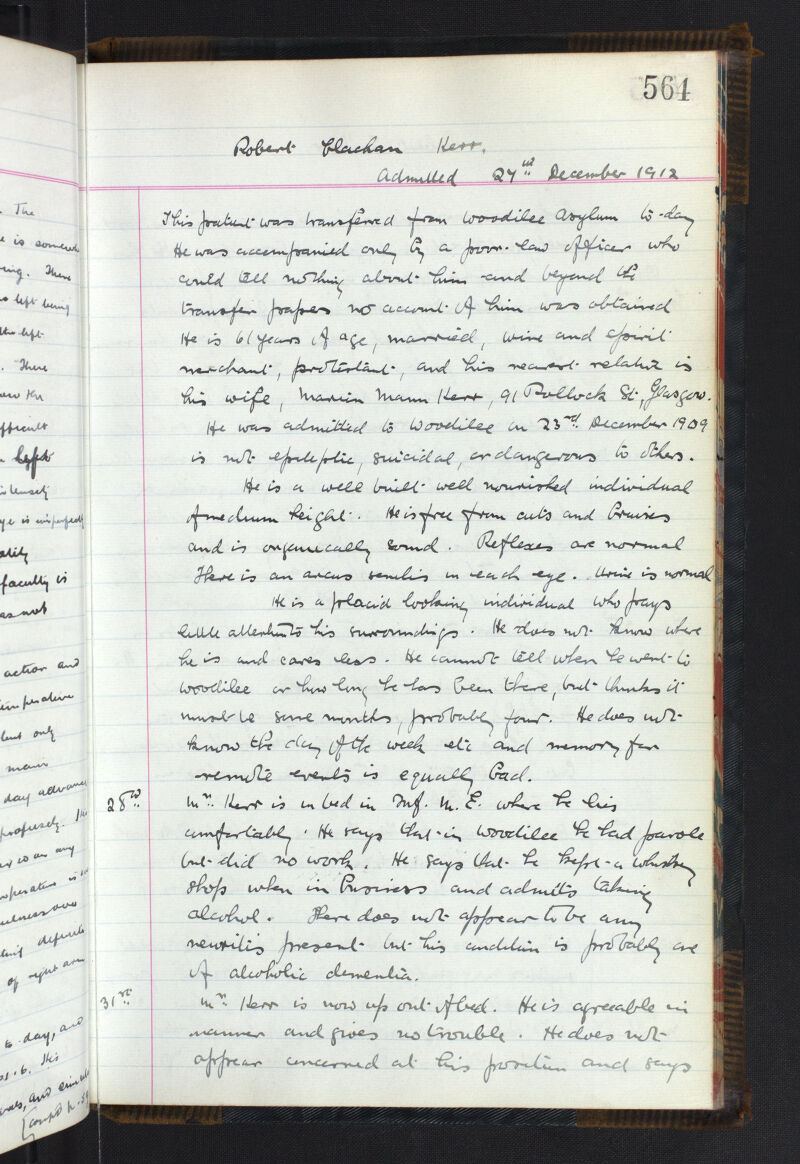 564
Robert Clachan Kerr.
Admitted 27th December 1912
This patient was transferred from Woodilee Asylum to-day
He was accompanied only by a poor-law officer who
could tell nothing about him and beyond the
transfer papers no account of him was obtained
He is 61 years of age, married, wine and spirit
merchant, protestant, and his nearest relative is
his wife, Mann Kerr, 91 Pollock St., Glasgow.
He was admitted to Woodilee on 23rd December 1909
is not epileptic, suicidal, or dangerous to others.
He is a well built well nourished individual
of medium height. He is free from cuts and bruises
and is organically sound. Reflexes are normal
There is an arcus senilis in each eye. Urine is normal
He is a placid looking individual who pays
little attention to his surroundings. He does not know where
he is and cares less. He cannot tell when he went to
Woodilee or how long he has been there, but thinks it
must be some months, probably four. He does not
know the day of the week etc and memory for
remote events is equally bad.
28th Mr. Kerr is in bed in Inf. M. E. where he lies
comfortably. He says that in Woodilee he had parole
but did no work. He says that he kept a whisky
shop when in business and admits taking
alcohol. There does not appear to be any
neuritis present but his condition is probably one
of alcoholic dementia.
31st Mr. Kerr is now up out of bed. He is agreeable in
manner and gives no trouble. He does not
appear concerned at his position and says
. The
e is
ing. There
left being
the left
. There
difficult
left
intensely
eye is imperfectly
faculty is
as not
action and
imperative
but only
day advance
profusely.
any
of right arm
to-day, and
. His